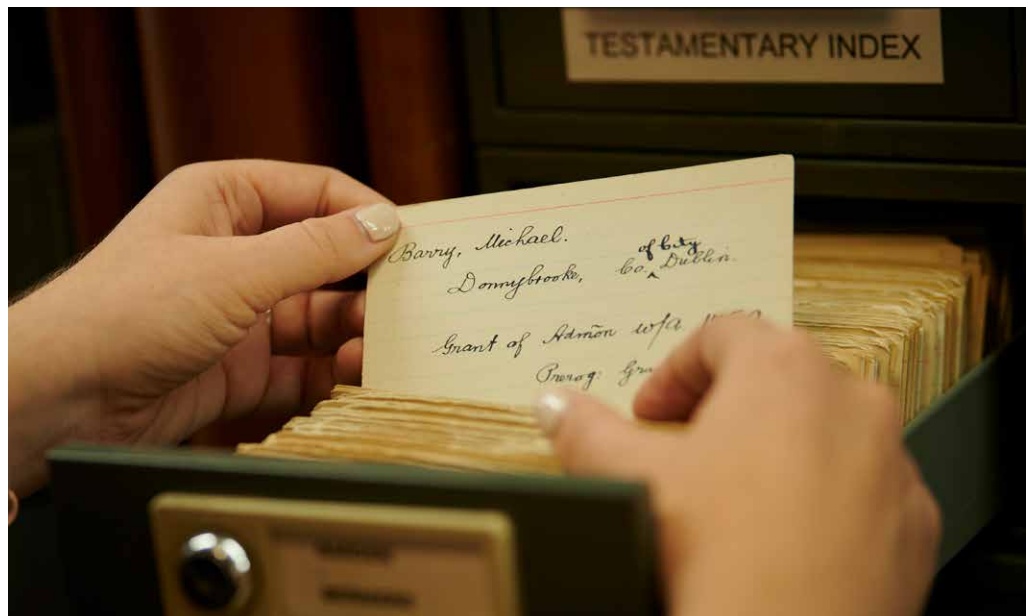 TESTAMENTARY INDEX
Barry, Michael.
of City
Donnybrooke, Co. ^ Dublin.
Grant of Admõn w/a
Prerog: